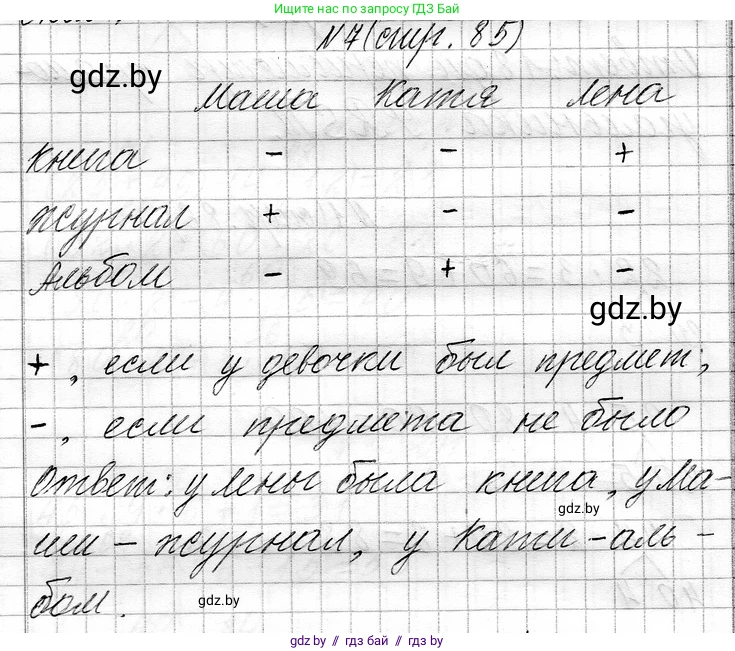 Ищите нас по запросу ГДЗ Бай
N7(стр. 85)
gdz.by
Маша Катя Лена
книга - - +
журнал + - -
Альбом - + -
gdz.by
+, если у девочки был предмет;
-, если предмета не было
Ответ: у Лены была книга, у Ма-
gdz.by
ши - журнал, у Кати - аль-
бом.
gdz.by
gdz.by // гдз бай // gdz.by